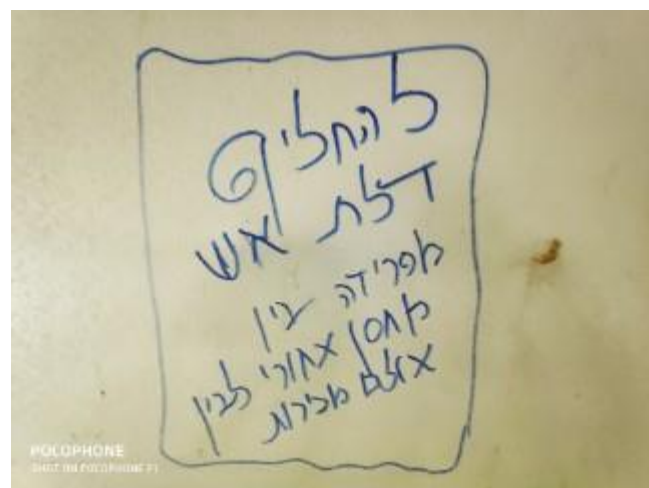 להחליף
דלת אש
מפרידה בין
מחסן אחורי לבין
אולם מכירות
POCOPHONE
SHOT ON POCOPHONE F1